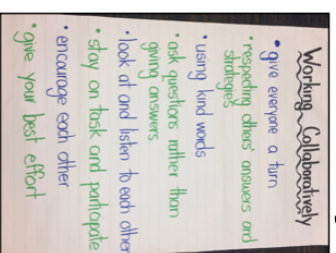 Working Collaboratively
• give everyone a turn
• respecting others' answers and
strategies
• using kind words
• ask questions rather than
giving answers
• look at and listen to each other
• stay on task and participate
• encourage each other
• give your best effort